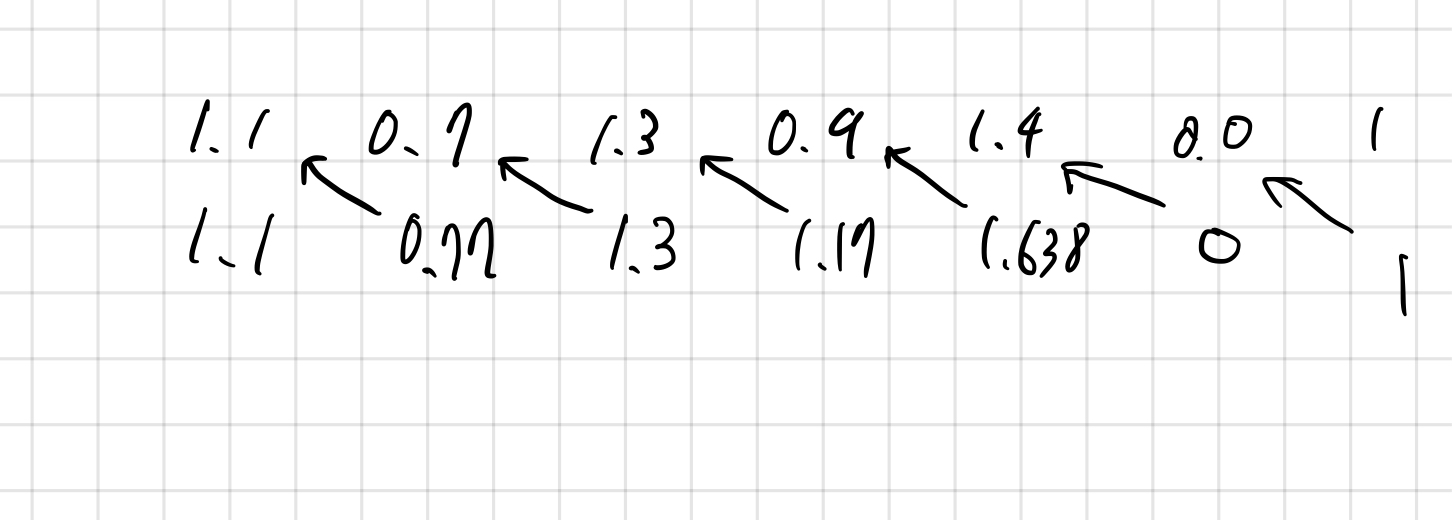 1.1 0.7 1.3 0.9 1.4 0.0 1
1.1 0.77 1.3 1.17 1.638 0 1